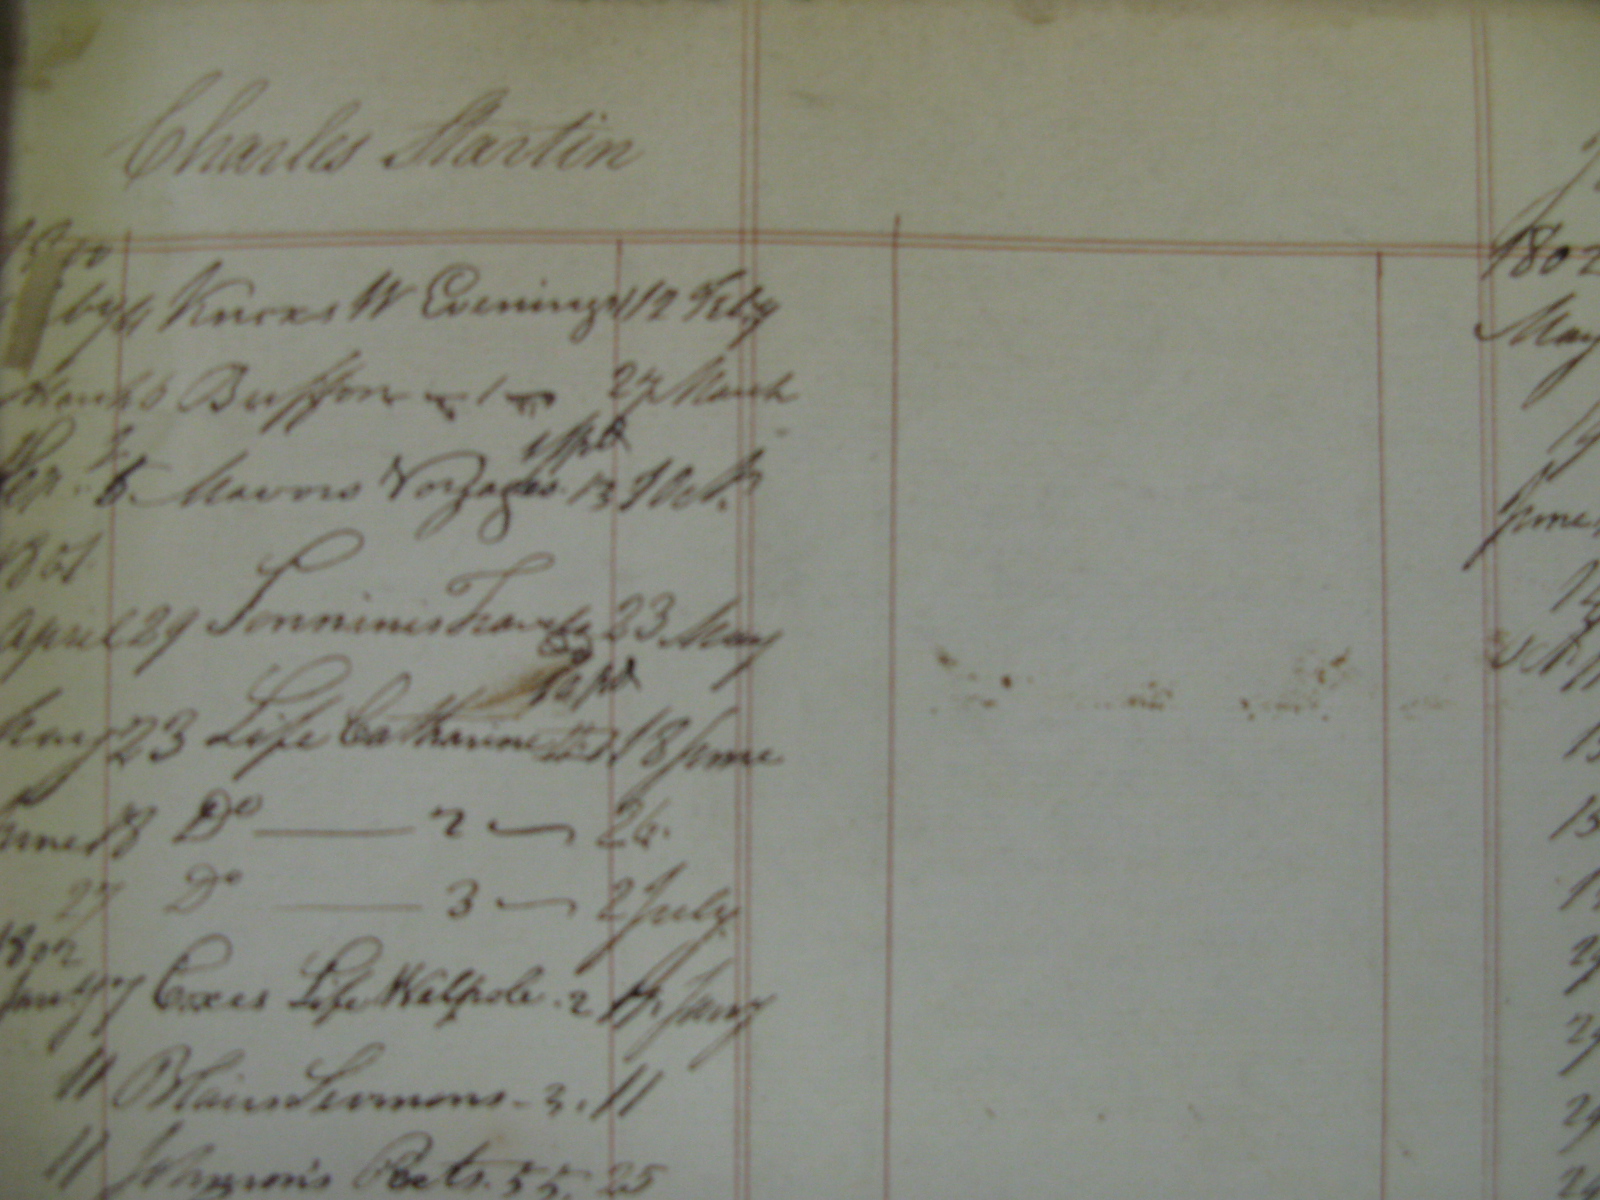 Charles Startin
1800
Feby 4 Knoxs W Evenings 1 12 Feby
March 5 Buffon 1 27 March
Sep. 5 Mavors Voyages 13 9 Oct.
1801
April 29 Sonninis Travels 23 May
May 23 Life Catharine 1 18 June
June 18 Do 2 26.
27 Do 3 2 July
1802
Jany 7 Coxes Life Walpole . 2 11. Jany
11 Blairs Sermons - 3. 11
11 Johnson's Poets. 55. 25
1802
May
June
Oct.